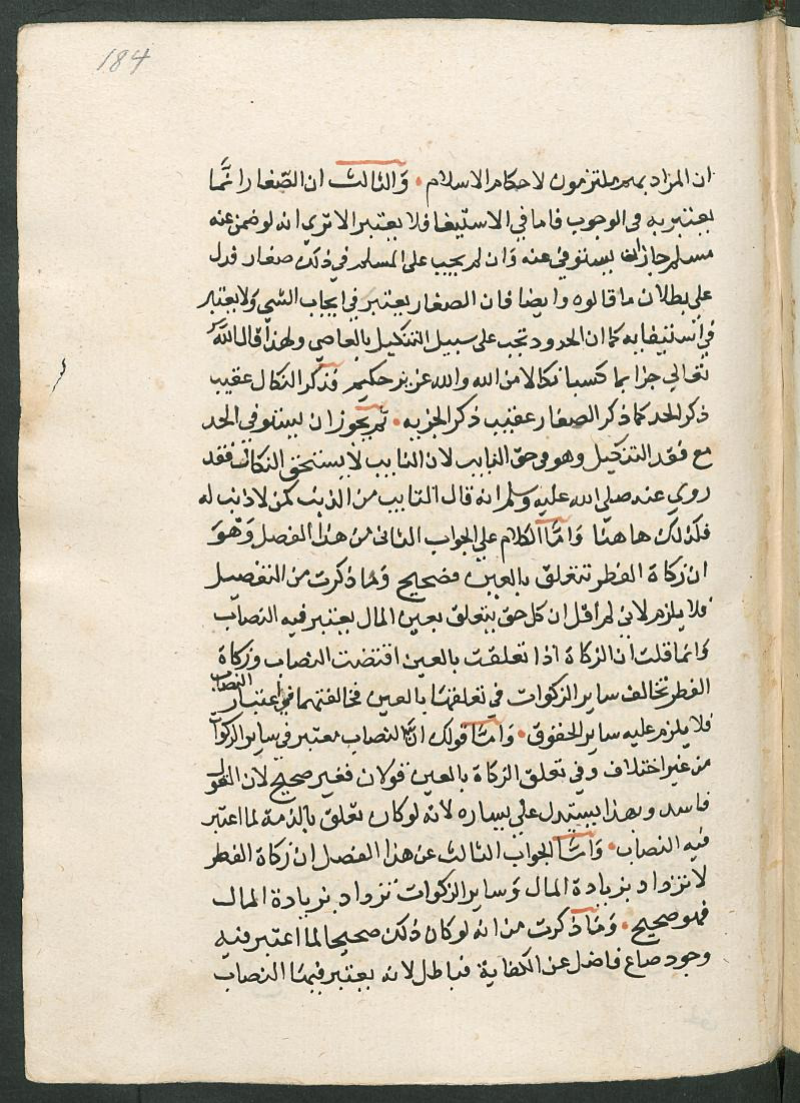 184
ان المراد بهم ملتزمون لاحكام الاسلام • والثالث ان الصّغار انّما
يعتبر به في الوجوب فاما في الاستيفا فلا يعتبر الا ترى انه لو ضمن عنه
مسلم جاز ان يستوفى عنه وان لم يجب على المسلم في ذلك صغار فدل
على بطلان ما قالوه وايضا فان الصغار يعتبر في ايجاب الشي ولا يعتبر
في استيفايه كما ان الحدود تجب على سبيل التنكيل بالعاصي ولهذا قال الله
تعالى جزا بما كسبا نكالا من الله والله عزيز حكيم فذكر النكال عقيب
ذكر الحد كما ذكر الصغار عقيب ذكر الجزيه • ثم يجوز ان يستوفى الحد
مع فقد التنكيل وهو في حق التايب لان التايب لا يستحق النكال فقد
روي عنه صلى الله عليه وسلم انه قال التايب من الذنب كمن لا ذنب له
فكذلك هاهنا وامّا الكلام على الجواب الثاني من هذا الفصل وهو
ان زكاة الفطر تتعلق بالعين فصحيح وما ذكرت من التفصيل
فلا يلزم لاني لم اقل ان كل حق يتعلق بعين المال يعتبر فيه النصاب
وانما قلت ان الزكاة اذا تعلقت بالعين اقتضت النصاب وزكاة
الفطر تخالف ساير الزكوات في تعلقها بالعين فخالفتهما في اعتبار النصاب
فلا يلزم عليه ساير الحقوق • وامّا قولك ان النصاب معتبر في ساير الزكوات
من غير اختلاف وفي تعلق الزكاة بالعين قولان فغير صحيح لان القول
فاسد وبهذا يستدل على يساره لانه لو كان تعلق بالذمة لما اعتبر
فيه النصاب • وامّا الجواب الثالث عن هذا الفصل ان زكاة الفطر
لا تزداد بزيادة المال وساير الزكوات تزداد بزيادة المال
فهو صحيح • وما ذكرت من انه لو كان ذلك صحيحا لما اعتبر فيه
وجود صاع فاضل عن الكفاية فباطل لانه يعتبر فيها النصاب